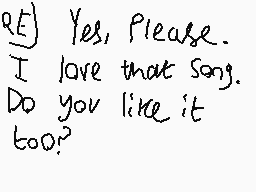 RE) Yes, Please.
I love that song.
Do you like it
too?